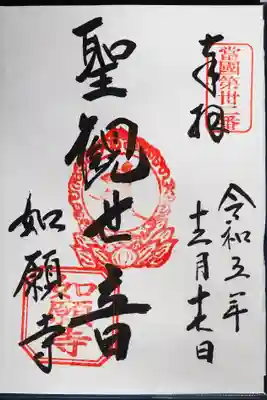 奉拝
當國第卅二番
令和五年
十二月十七日
聖観世音
如願寺
如願寺